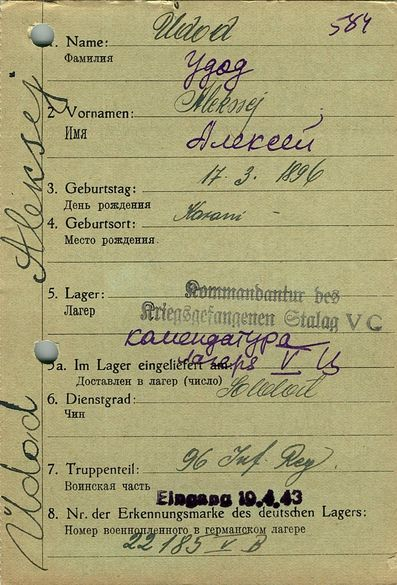 Udod 584
1. Name:
Фамилия Удод
2 Vornamen: Aleksej
Имя Алексей
3. Geburtstag: 17. 3. 1896
День рождения
4. Geburtsort: Karani
Место рождения.
5. Lager: Kommandantur des
Лагер Kriegsgefangenen Stalag V C
комендатура
лагеря V Ц
5a. Im Lager eingeliefert am:
Доставлен в лагер (число)
6. Dienstgrad: Soldat
Чин
7. Truppenteil: 96 Inf. Reg.
Воинская часть Eingang 10.4.43
8. Nr. der Erkennungsmarke des deutschen Lagers:
Номер военнопленного в германском лагере
22 185 V B
Udod Aleksej